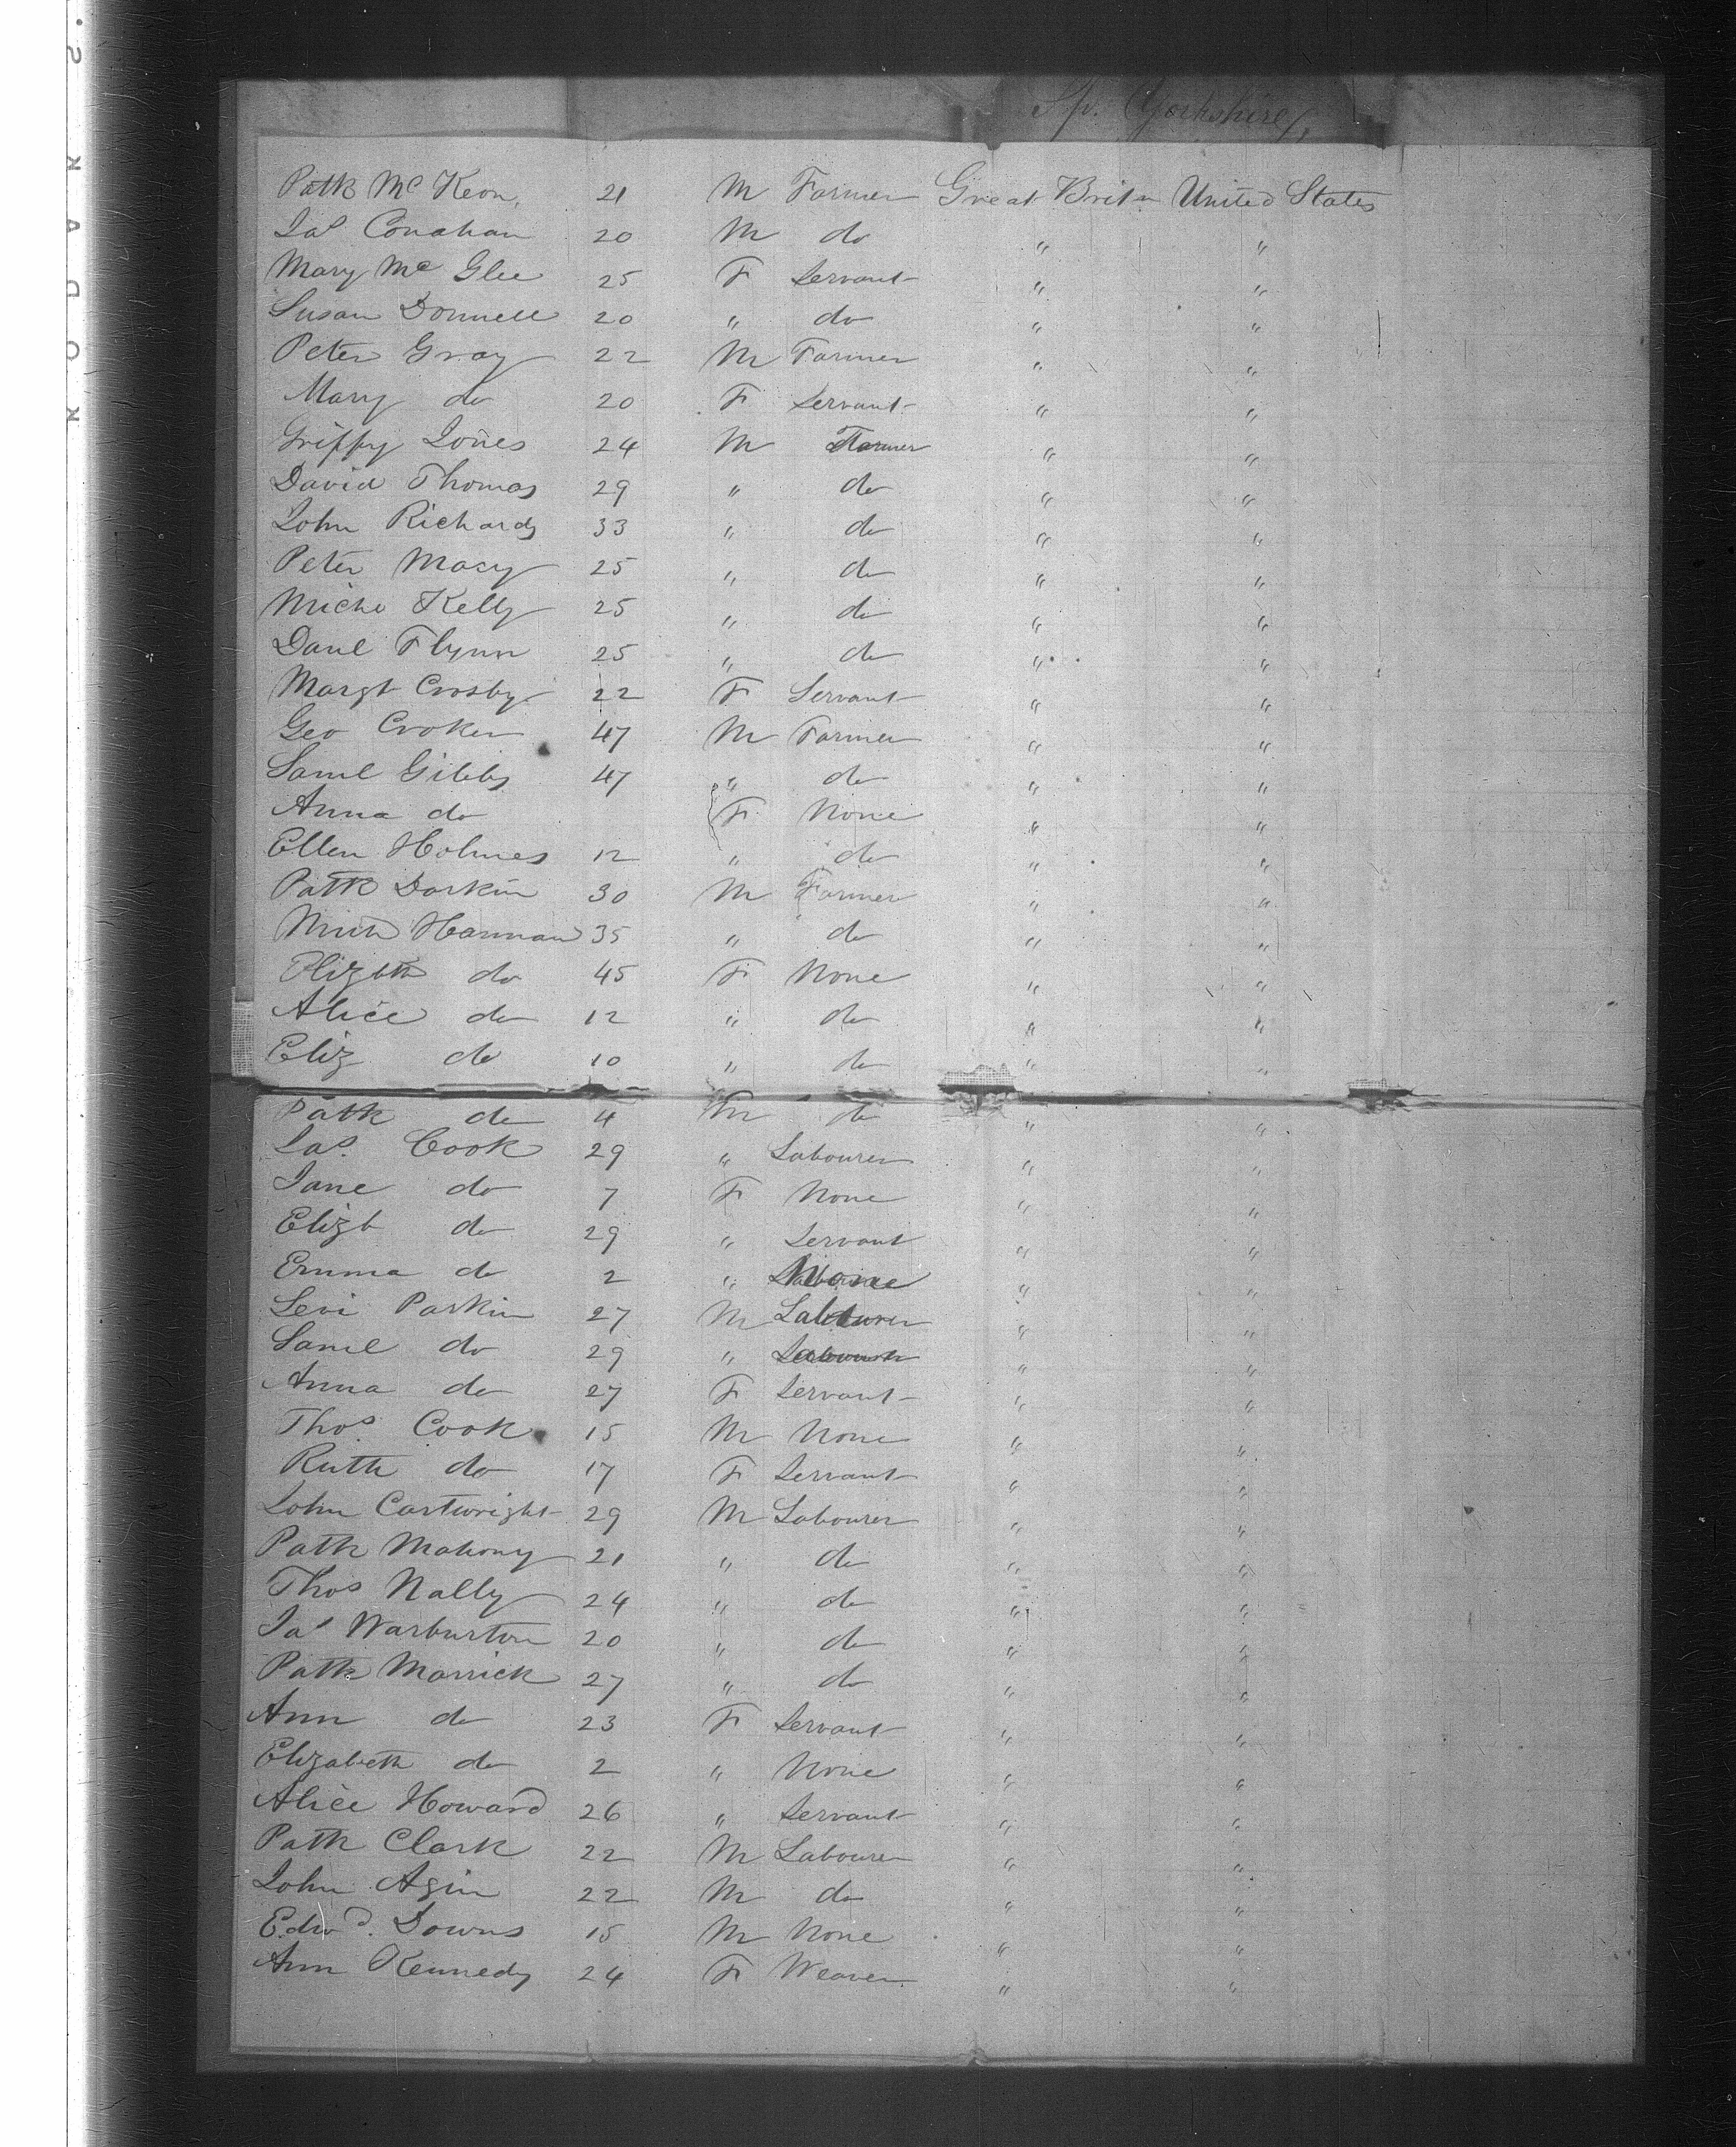 Sp. Yorkshire,
Patk Mc Keon, 21 M Farmer Great Britn United States
Jas Conahan 20 M do " "
Mary Mc Glee 25 F Servant " "
Susan Donnell 20 " do " "
Peter Gray 22 M Farmer " "
Mary do 20 F Servant " "
Griffy Jones 24 M Farmer " "
David Thomas 29 " do " "
John Richards 33 " do " "
Peter Macy 25 " do " "
Michl Kelly 25 " do " "
Danl Flynn 25 " do " "
Margt Crosby 22 F Servant " "
Geo Croker 47 M Farmer " "
Saml Gibbs 47 " do " "
Anna do F None " "
Ellen Holmes 12 " do " "
Patk Darkin 30 M Farmer " "
Mich Hannan 35 " do " "
Elizbth do 45 F None " "
Alice do 12 " do " "
Eliz do 10 " do " "
Patk do 4 M do " "
Jas. Cook 29 " Labourer " "
Jane do 7 F None " "
Elizb do 29 " Servant " "
Emma do 2 " None " "
Levi Parkin 27 M Labourer " "
Saml do 29 " Labourer " "
Anna do 27 F Servant " "
Thos. Cook 15 M None " "
Ruth do 17 F Servant " "
John Cartwright 29 M Labourer " "
Patk Mahony 21 " do " "
Thos Nally 24 " do " "
Jas Warburton 20 " do " "
Patk Marrick 27 " do " "
Ann do 23 F Servant " "
Elizabeth do 2 " None " "
Alice Howard 26 " Servant " "
Patk Clark 22 M Labourer " "
John Agin 22 M do " "
Edwd. Downs 15 M None " "
Ann Kennedy 24 F Weaver " "